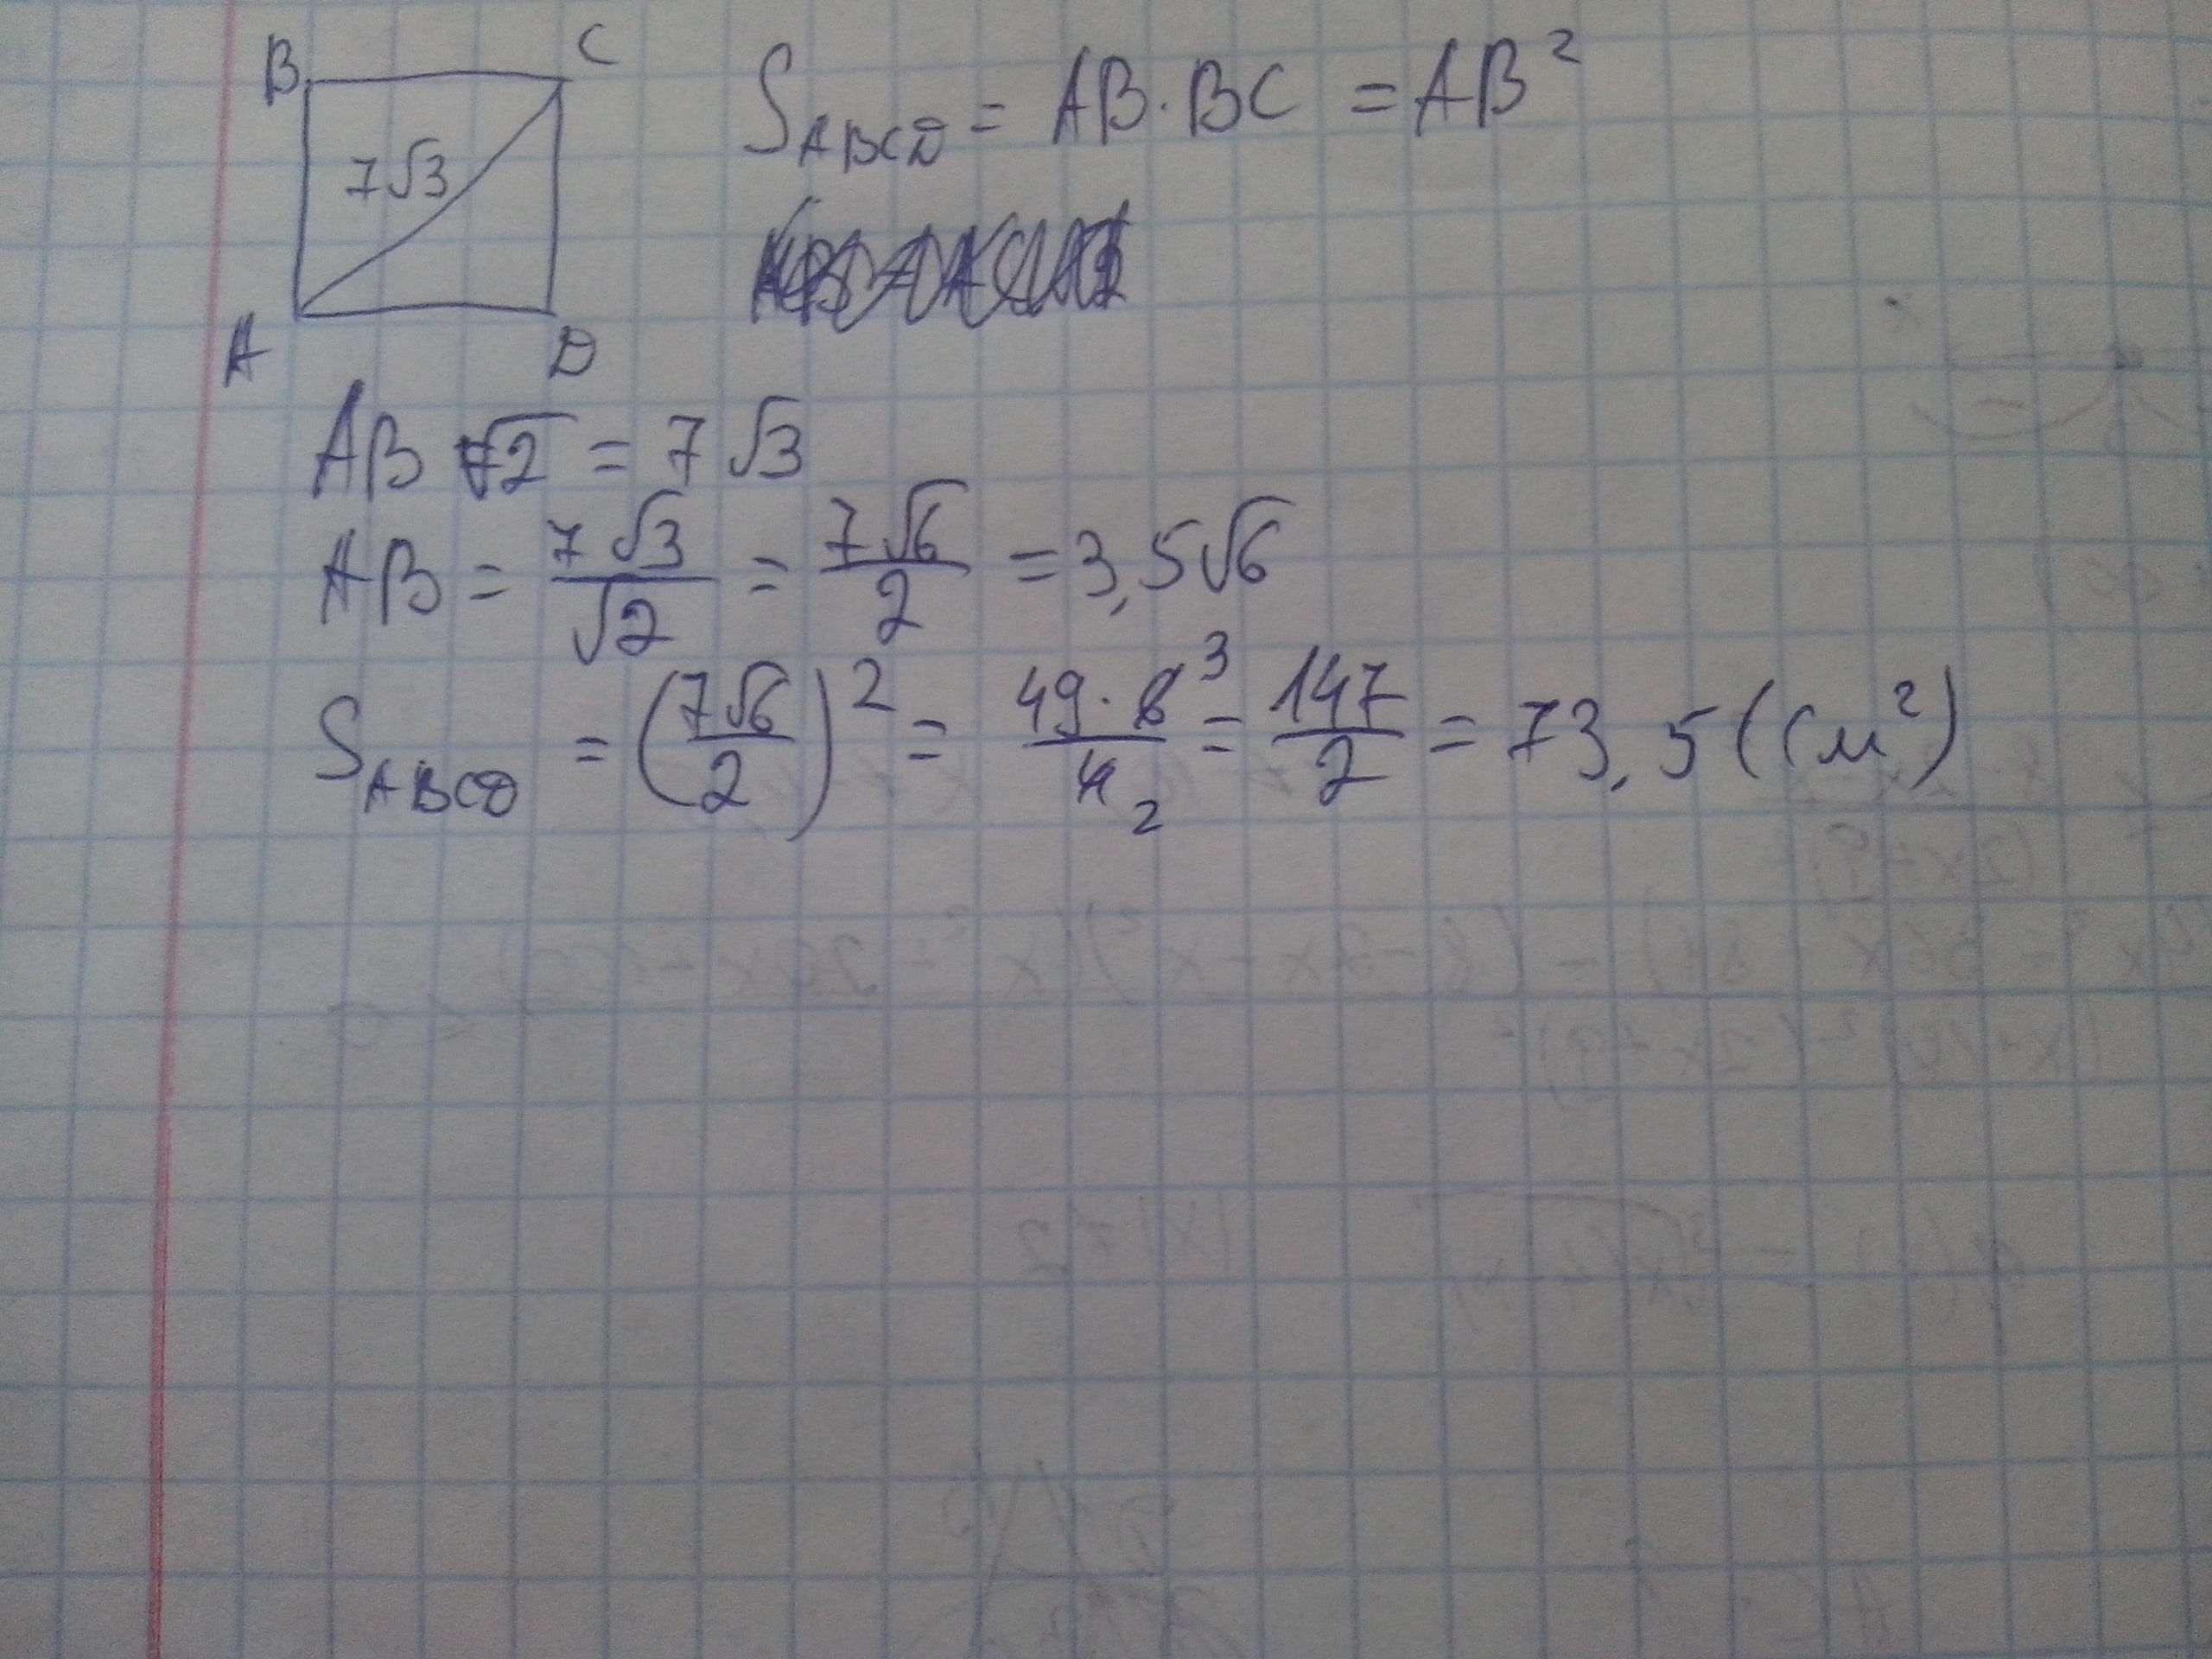 B C
7√3
A D
S_ABCD = AB · BC = AB²
AB √2 = 7√3
AB = 7√3/√2 = 7√6/2 = 3,5√6
S_ABCD = (7√6/2)² = 49·6³/4₂ = 147/2 = 73,5 (см²)